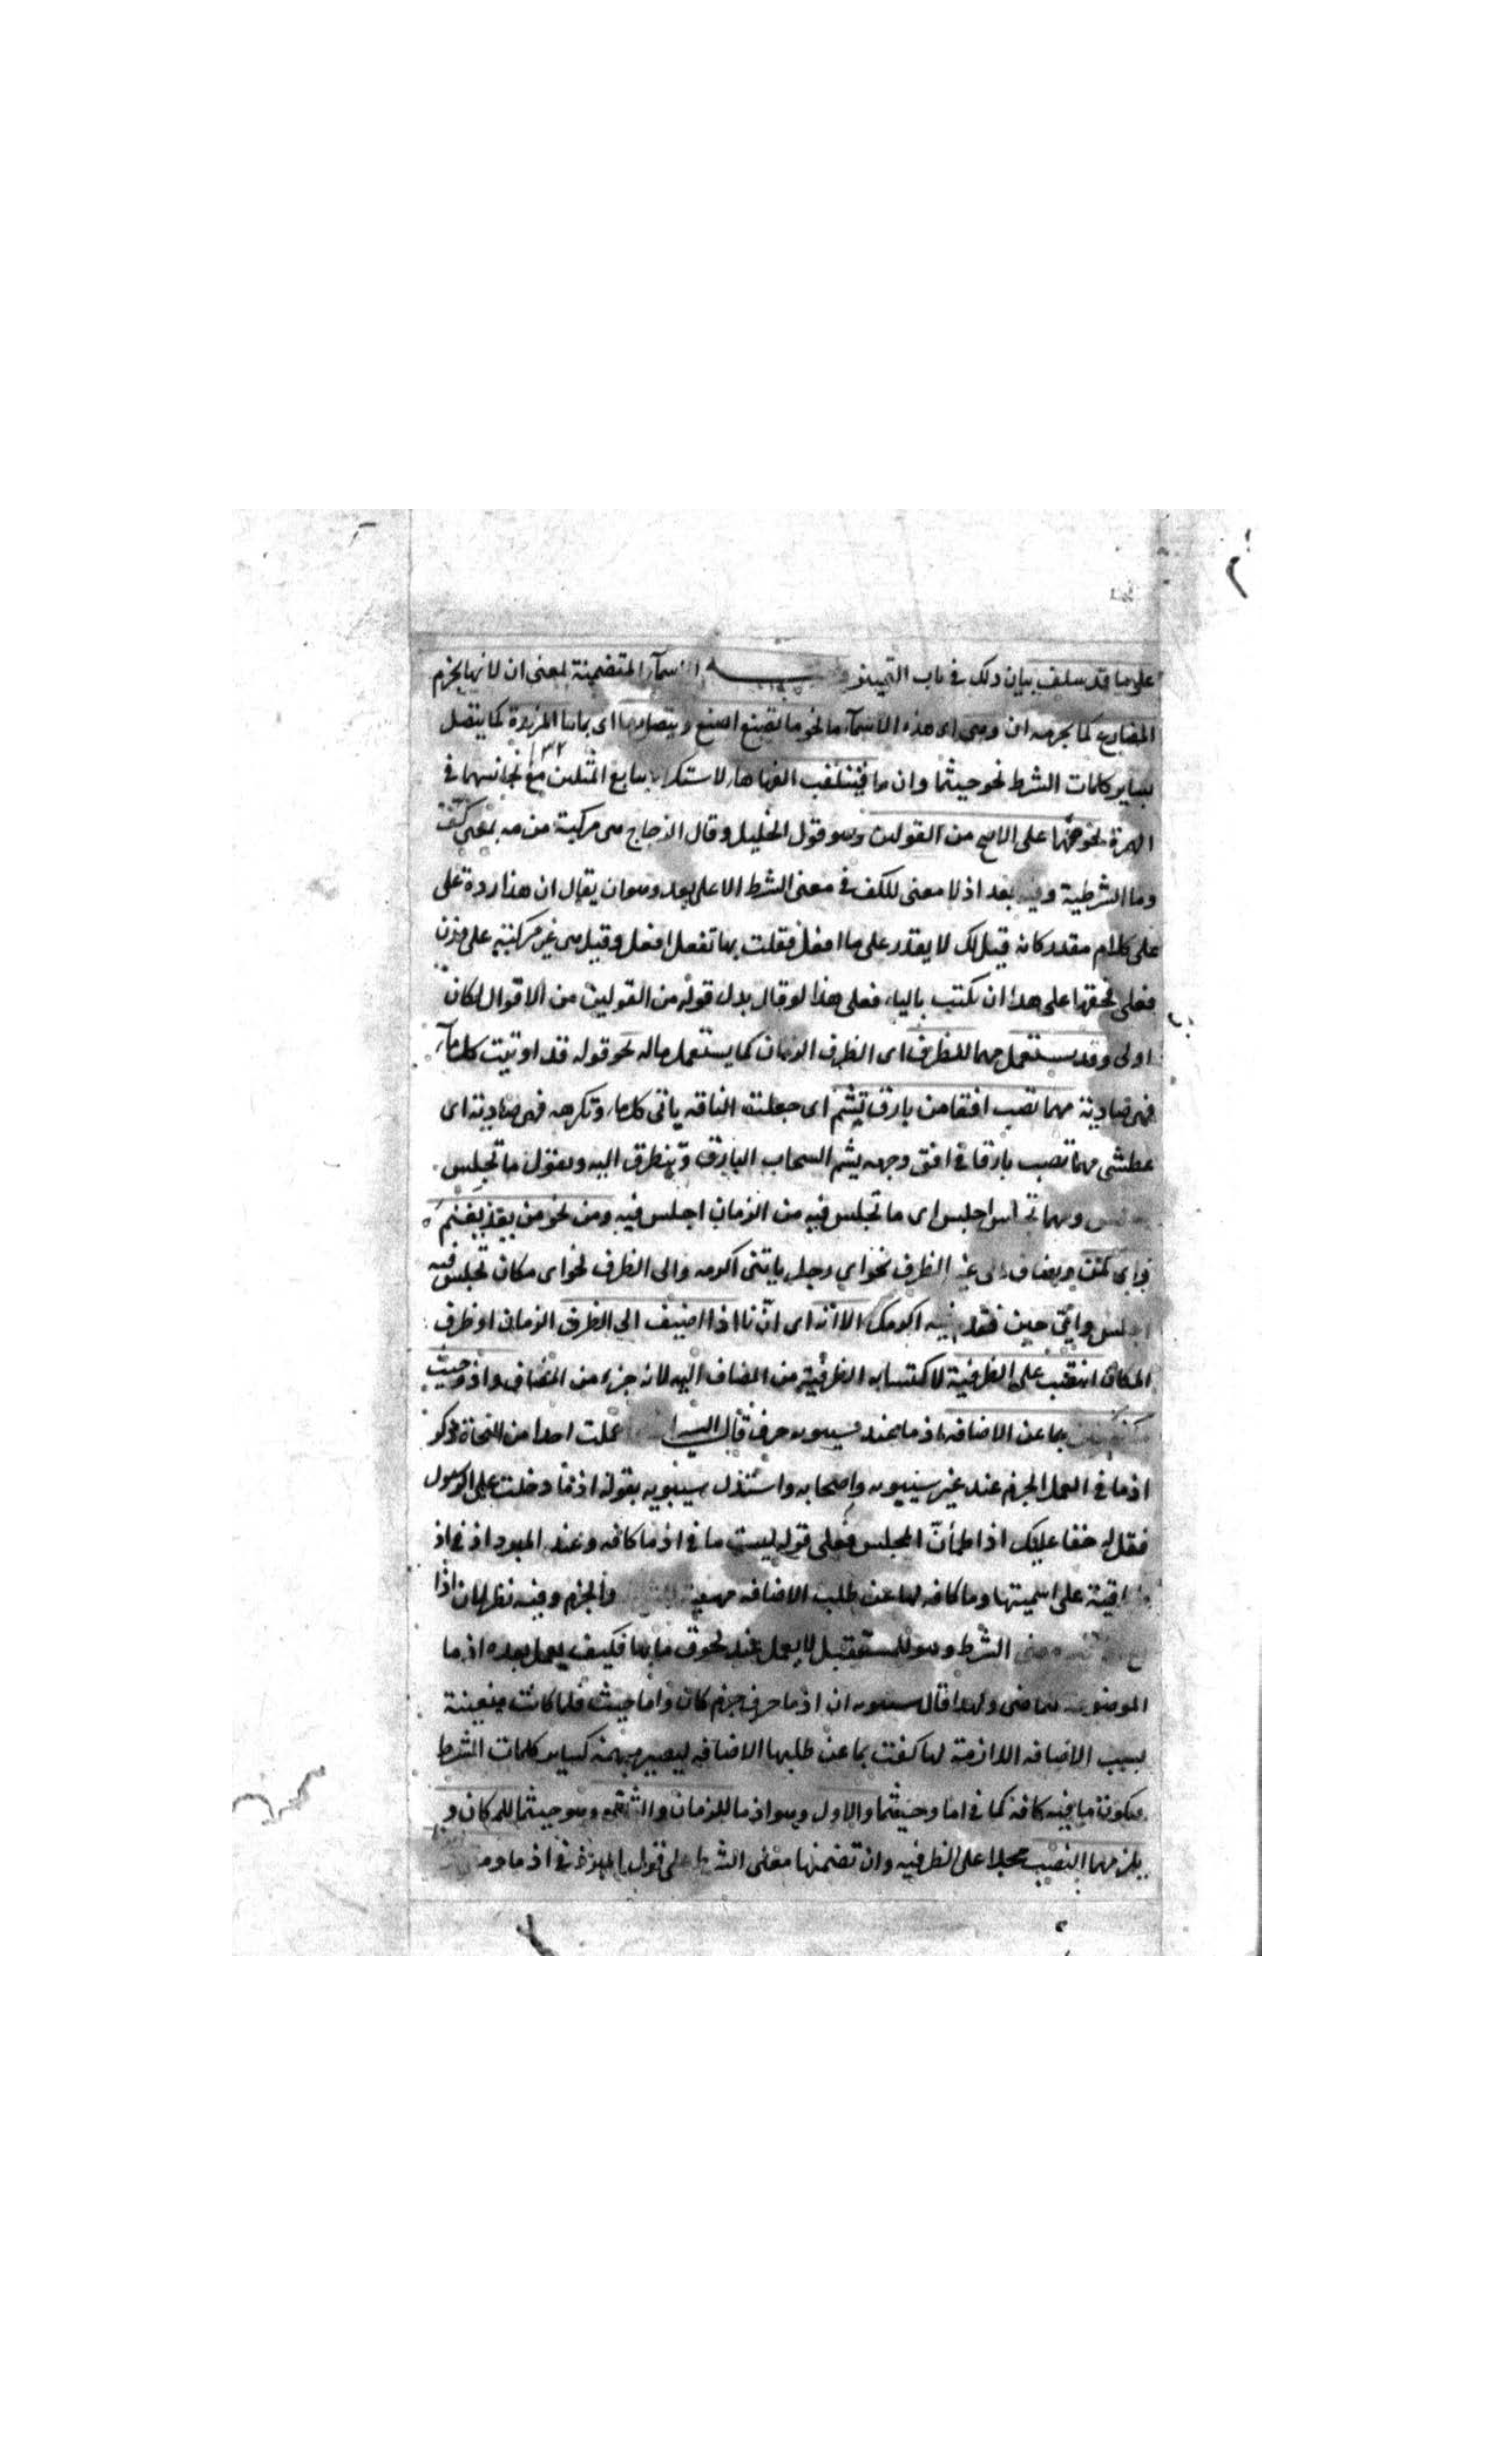 على ما قد سلف بيان ذلك في باب التمييز الاسماء المتضمنة لمعنى ان لانها يجزم
المضارع كما يجزمه ان وهي اى هذه الاسماء ما نحو ما تصنع اصنع ويتصل بها اى بما ما المزيدة كما يتصل
بساير كلمات الشرط نحو حيثما وان ما فينقلب الفها هاء لاستكراه تتابع المثلين مع تجانسهما في
نحو مهما على الاصح من القولين وهو قول الخليل وقال الزجاج هى مركبة من مه بمعنى كفف
وما الشرطية وفيه بعد اذ لا معنى للكف في معنى الشرط الا على بعد وهو ان يقال ان هذا ردة على
على كلام مقدر كانه قيل لك لا يقدر على ما افعل فقلت مهما تفعل افعل وقيل هى غير مركبة على وزن
فعلى فحقها على هذا ان تكتب بالياء فعلى هذا لو قال بدل قوله من القولين من الاقوال لكان
اولى وقد يستعمل مهما للظرف اى الظرف الزمان كما يستعمل ماله نحو قوله قد اوتيت كل ماء
فهى ضاوية مهما تصب افقا من بارق تشم اى جعلت الناقة ياتى كل ماء وتكرهه فهى صاوية اى
عطشى مهما تصب بارقا في افق وجهه يشم السحاب البارق وينظر اليه ويقول ما تجلس
ومهما تجلس اجلس اى ما تجلس فيه من الزمان اجلس فيه ومن نحو من يغز يغنم
واى كمن ويضاف الى غير الظرف نحو اي رجل ياتنى اكرمه والى الظرف نحو اى مكان تجلس فيه
اجلس واىّ حين تقعد فيه اكرمك الا انه اى ان ايا اذا اضيف الى الظرف الزمان او ظرف
المكان انتصب على الظرفية لاكتسابه الظرفية من المضاف اليه لانه جزء من المضاف واذ وحيث
بما عن الاضافة اذ ما عند سيبويه حرف قال السيرا علمت احدا من النحاة ذكر
اذ ما في العمل الجزم عند غير سيبويه واصحابه واستدل سيبويه بقوله اذ ما دخلت على الرسول
فقل له حقا عليك اذا اطمأن المجلس فعلى قوله ليست ما في اذ ما كافة وعند المبرد اذ في اذ
باقية على اسميتها وما كافة لها عن طلب الاضافة مهيئة والجزم وفيه نظر لان اذا
الشرط وهو للمستقبل لا يعمل عند لحوق ما بها فكيف يعمل بعده اذ ما
الموضوعة للماضى ولهذا قال سيبويه ان اذ ما حرف جزم كان واما حيث فلما كانت متعينة
بسبب الاضافة اللازمة لها كفت بما عن طلبها الاضافة ليصير مبهمة كساير كلمات الشرط
فيكون ما فيه كافة كما في اما وحيثما والاول وهو اذ ما للزمان والثانى وهو حيثما للمكان و
يلزمهما النصب محلا على الظرفية وان تضمنها معنى الشرط على قول المبرد في اذ ما